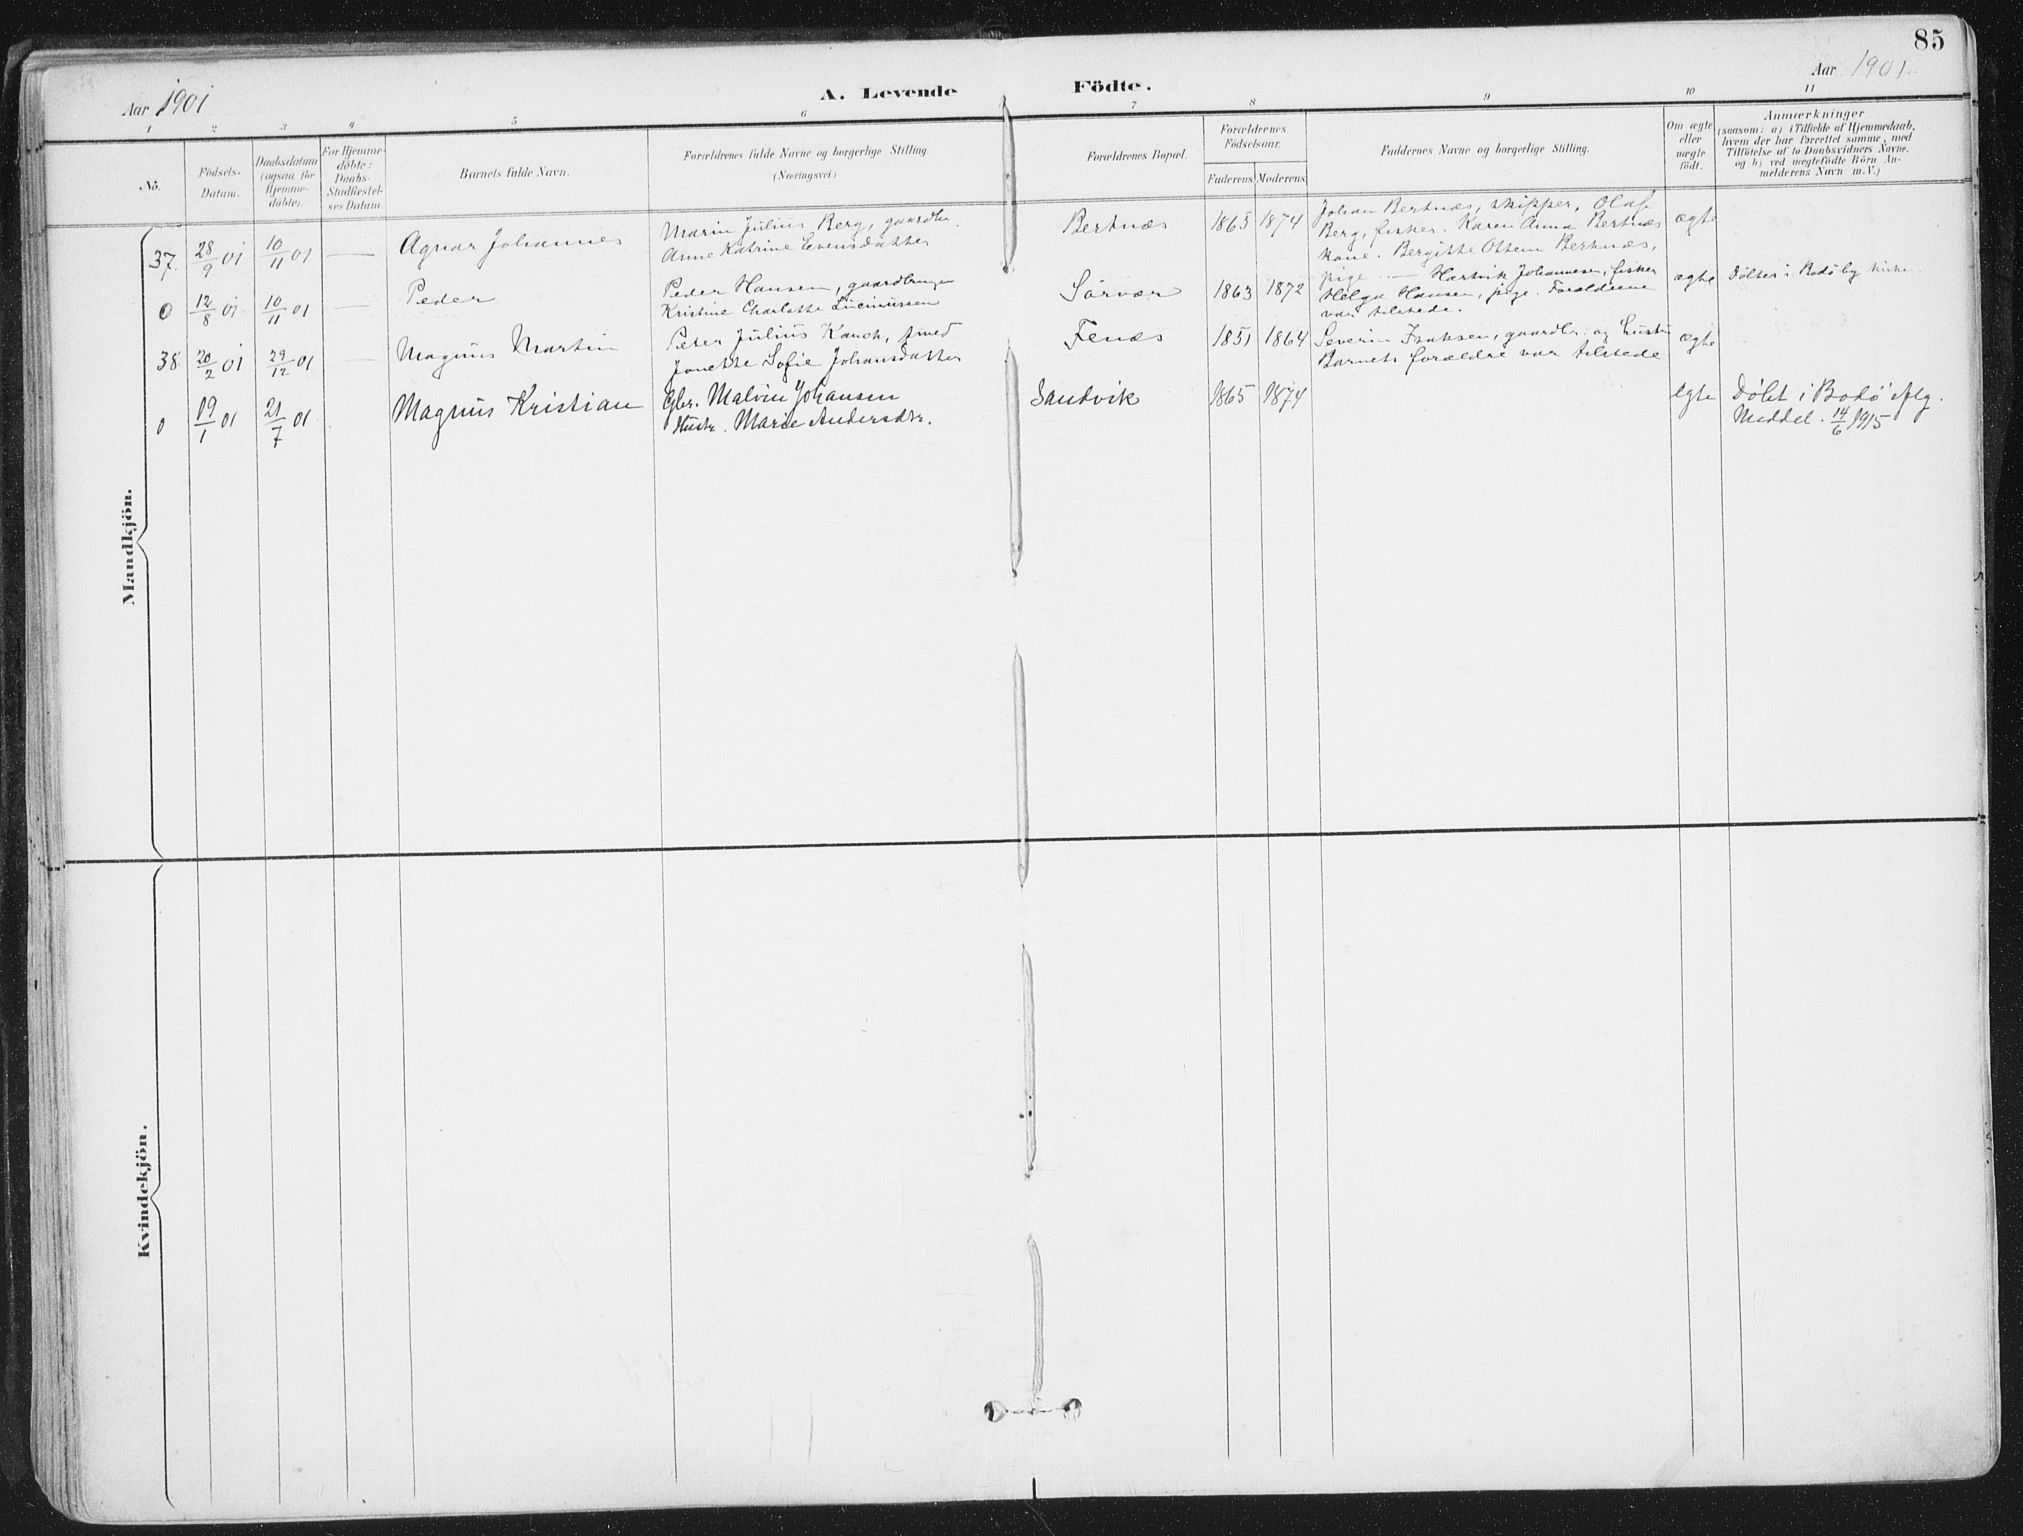 85
Aar 1901
A. Levende Födte.
Aar 1901
1 2 3 4 5 6 7 8 9 10 11
No.
Födsels-
Datum.
Daabsdatum
(ogsaa for
Hjemme-
döbte).
For Hjemme-
döbte:
Daabs-
Stadfæstel-
ses Datum.
Barnets fulde Navn.
Forældrenes fulde Navne og borgerlige Stilling
(Næringsvei.)
Forældrenes Bopæl.
Forældrenes
Födselsaar.
Faderens Moderens
Faddernes Navne og borgerlige Stilling.
Om ægte
eller
uægte
födt.
Anmærkninger
(saasom: a) i Tilfælde af Hjemmedaab,
hvem der har forrettet samme, med
Tilföielse af to Daabsvidners Navne,
og b) ved uægtefödte Börn An-
melderens Navn m.V.)
Mandkjön.
37. 28/9 01 10/11 01 — Agnar Johannes
Marin Julius Berg, gaardbr.
Anne Katrine Evensdatter
Bertnæs 1865 1874
Johan Bertnæs, skipper, Olaf
Berg, fisker. Karen Anna Bertnæs
kone. Bergitte Ottem Bertnæs,
pige
ægte
0 12/8 01 10/11 01 — Peder
Peder Hansen, gaardbruger
Kristine Charlotte
Sörvær 1863 1872
— Hartvik Johannesen, fisker
Helga Hansen, pige. Forældrene
var tilstede.
ægte Döbt i Bodö by kirke
38 20/2 01 29/12 01 — Magnus Martin
Peter Julius Kauch, smed
Jonette Sofie Johansdatter
Fenæs 1851 1864
Severin Isaksen, gaardbr. og hustru
Barnets forældre var tilstede
ægte
0 19/1 01 21/7 01 Magnus Kristian
Gbr. Malvin Johansen
Hustr. Marie Andersdtr.
Sandvik 1865 1874
egte Döbt i Bodö iflg.
Meddel. 14/6 1915
Kvindekjön.